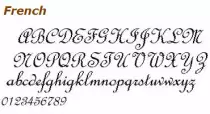 French
ABCDEFGHIJKLM
NOPQRSTUVWXYZ
abcdefghigklmnopqrstuvwxyz
0123456789